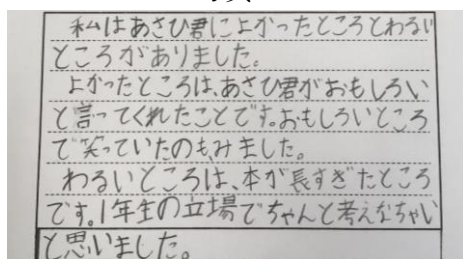 私はあさひ君によかったところとわるい
ところがありました。
よかったところは、あさひ君がおもしろい
と言ってくれたことです。おもしろいところ
で笑っていたのもみました。
わるいところは、本が長すぎたところ
です。1年生の立場でちゃんと考えなちゃい
と思いました。